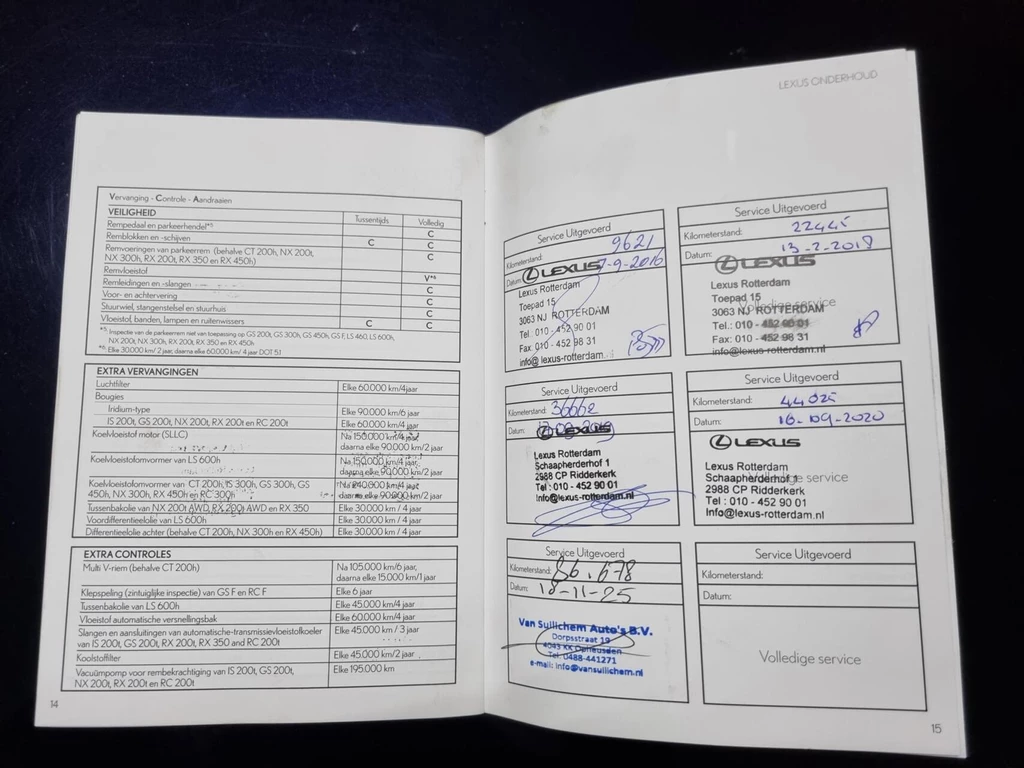 Vervanging - Controle - Aandraaien
VEILIGHEID Tussentijds Volledig
Rempedaal en parkeerhendel*⁵ C
Remblokken en -schijven C C
Remvoeringen van parkeerrem (behalve CT 200h, NX 200t, NX 300h, RX 200t, RX 350 en RX 450h) C
Remvloeistof V*⁶
Remleidingen en -slangen C
Voor- en achtervering C
Stuurwiel, stangenstelsel en stuurhuis C
Vloeistof, banden, lampen en ruitenwissers C C
*⁵: Inspectie van de parkeerrem niet van toepassing op GS 200t, GS 300h, GS 450h, GS F, LS 460, LS 600h,
NX 200t, NX 300h, RX 200t, RX 350 en RX 450h
*⁶: Elke 30.000 km/ 2 jaar, daarna elke 60.000 km/ 4 jaar DOT 5.1
EXTRA VERVANGINGEN
Luchtfilter Elke 60.000 km/4jaar
Bougies
Iridium-type Elke 90.000 km/6 jaar
IS 200t, GS 200t, NX 200t, RX 200t en RC 200t Elke 60.000 km/4 jaar
Koelvloeistof motor (SLLC) Na 150.000 km/4 jaar,
daarna elke 90.000 km/2 jaar
Koelvloeistofomvormer van LS 600h Na 150.000 km/4 jaar,
daarna elke 90.000 km/2 jaar
Koelvloeistofomvormer van CT 200h, IS 300h, GS 300h, GS Na 240.000 km/4 jaar
450h, NX 300h, RX 450h en RC 300h daarna elke 90.000 km/2 jaar
Tussenbakolie van NX 200t AWD, RX 200t AWD en RX 350 Elke 30.000 km / 4 jaar
Voordifferentieelolie van LS 600h Elke 30.000 km / 4 jaar
Differentieelolie achter (behalve CT 200h, NX 300h en RX 450h) Elke 30.000 km / 4 jaar
EXTRA CONTROLES
Multi V-riem (behalve CT 200h) Na 105.000 km/6 jaar,
daarna elke 15.000 km/1 jaar
Klepspeling (zintuiglijke inspectie) van GS F en RC F Elke 6 jaar
Tussenbakolie van LS 600h Elke 45.000 km/4 jaar
Vloeistof automatische versnellingsbak Elke 60.000 km/4 jaar
Slangen en aansluitingen van automatische-transmissievloeistofkoeler Elke 45.000 km / 3 jaar
van IS 200t, GS 200t, RX 200t, RX 350 and RC 200t
Koolstoffilter Elke 45.000 km/2 jaar
Vacuümpomp voor rembekrachtiging van IS 200t, GS 200t, Elke 195.000 km
NX 200t, RX 200t en RC 200t
14
LEXUS ONDERHOUD
Service Uitgevoerd
Kilometerstand: 9621
Datum: 7-9-2016
LEXUS
Lexus Rotterdam
Toepad 15
3063 NJ ROTTERDAM
Tel. 010 - 452 90 01
Fax 010 - 452 98 31
info@lexus-rotterdam.
Service Uitgevoerd
Kilometerstand: 22445
Datum: 13-2-2018
LEXUS
Lexus Rotterdam
Toepad 15
Volledige service
3063 NJ ROTTERDAM
Tel.: 010 - 452 90 01
Fax: 010 - 452 98 31
info@lexus-rotterdam.nl
Service Uitgevoerd
Kilometerstand: 36662
Datum:
LEXUS
Lexus Rotterdam
Schaapherderhof 1
2988 CP Ridderkerk
Tel : 010 - 452 90 01
Info@lexus-rotterdam.nl
Service Uitgevoerd
Kilometerstand: 44025
Datum: 16-09-2020
LEXUS
Lexus Rotterdam
Schaapherderhof 1
Volledige service
2988 CP Ridderkerk
Tel : 010 - 452 90 01
Info@lexus-rotterdam.nl
Service Uitgevoerd
Kilometerstand: 86.678
Datum: 18-11-25
Van Sullichem Auto's B.V.
Dorpsstraat 19
4043 KK Opheusden
Tel. 0488-441271
e-mail: info@vansullichem.nl
Service Uitgevoerd
Kilometerstand:
Datum:
Volledige service
15